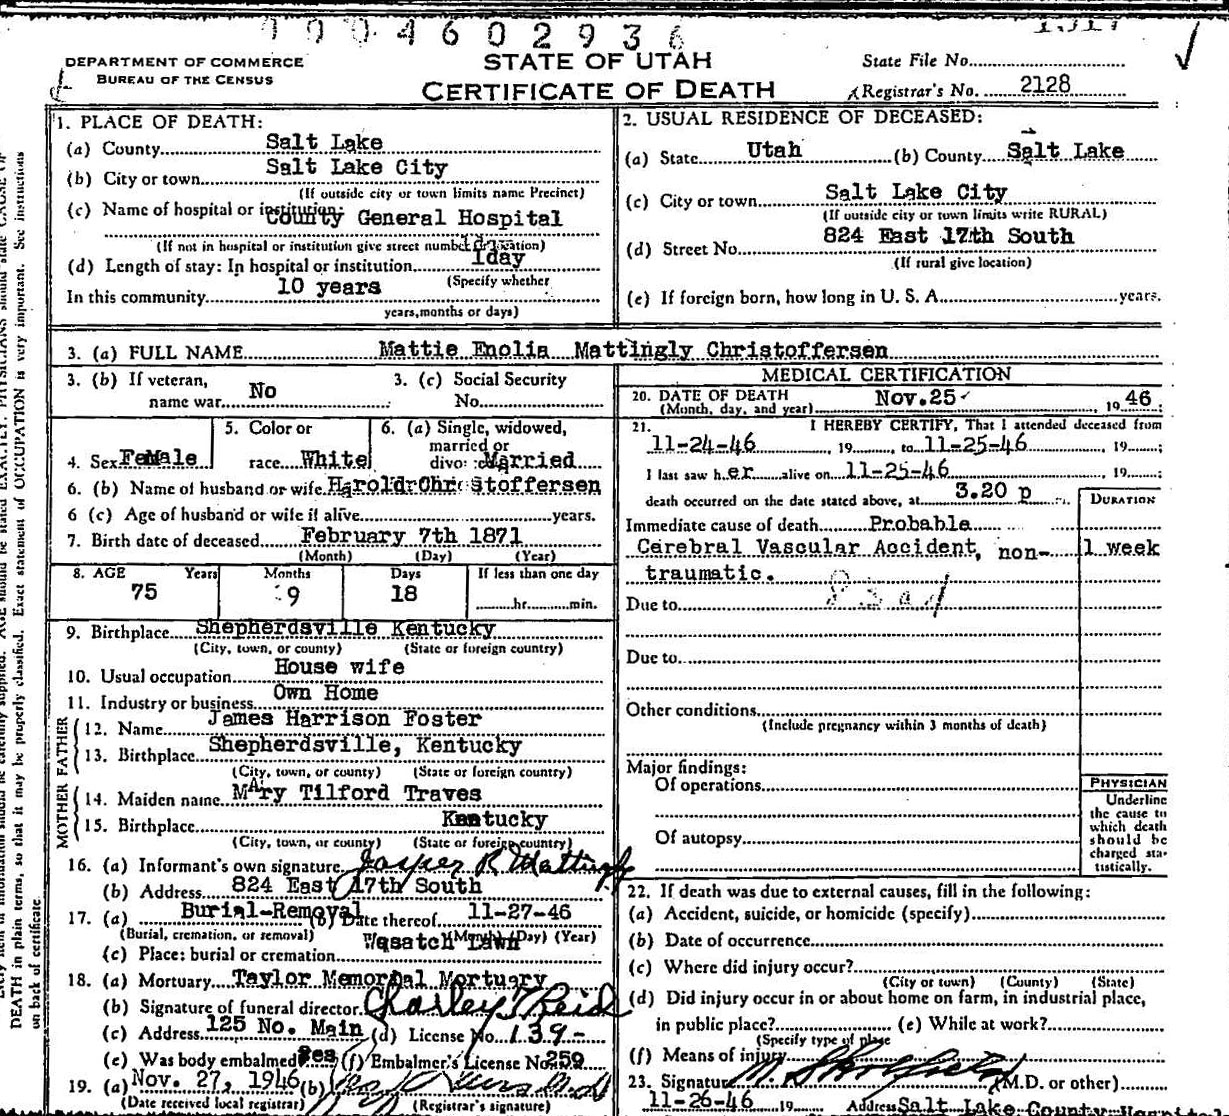 0004602936
DEPARTMENT OF COMMERCE
BUREAU OF THE CENSUS
STATE OF UTAH
CERTIFICATE OF DEATH
State File No.
Registrar's No. 2128
1. PLACE OF DEATH:
(a) County Salt Lake
(b) City or town Salt Lake City
(If outside city or town limits name Precinct)
(c) Name of hospital or institution: County General Hospital
(If not in hospital or institution give street number or location)
(d) Length of stay: In hospital or institution 1day
(Specify whether
In this community 10 years
years, months or days)
2. USUAL RESIDENCE OF DECEASED:
(a) State Utah (b) County Salt Lake
(c) City or town Salt Lake City
(If outside city or town limits write RURAL)
(d) Street No. 824 East 17th South
(If rural give location)
(e) If foreign born, how long in U. S. A. years.
3. (a) FULL NAME Mattie Enolia Mattingly Christoffersen
3. (b) If veteran, name war No
3. (c) Social Security No.
4. Sex FeMale
5. Color or race White
6. (a) Single, widowed, married or divorced Married
6. (b) Name of husband or wife Harold Christoffersen
6 (c) Age of husband or wife if alive years.
7. Birth date of deceased February 7th 1871
(Month) (Day) (Year)
8. AGE Years Months Days If less than one day
75 9 18 hr. min.
9. Birthplace Shepherdsville Kentucky
(City, town, or county) (State or foreign country)
10. Usual occupation House wife
11. Industry or business Own Home
FATHER
12. Name James Harrison Foster
13. Birthplace Shepherdsville, Kentucky
(City, town, or county) (State or foreign country)
MOTHER
14. Maiden name MAry Tilford Traves
15. Birthplace Kentucky
(City, town, or county) (State or foreign country)
16. (a) Informant's own signature Jasper R Mattingly
(b) Address 824 East 17th South
17. (a) Burial-Removal (b) Date thereof 11-27-46
(Burial, cremation, or removal) (Month) (Day) (Year)
(c) Place: burial or cremation Wasatch Lawn
18. (a) Mortuary Taylor Memorial Mortuary
(b) Signature of funeral director Charley T Reid
(c) Address 125 No. Main (d) License No. 139-
(e) Was body embalmed Yes (f) Embalmer's License No. 259
19. (a) Nov. 27, 1946 (b)
(Date received local registrar) (Registrar's signature)
MEDICAL CERTIFICATION
20. DATE OF DEATH Nov.25 1946
(Month, day, and year)
21. I HEREBY CERTIFY, That I attended deceased from
11-24-46, 19 , to 11-25-46, 19 ;
I last saw h er alive on 11-25-46 19 ;
death occurred on the date stated above, at 3.20 p m.
DURATION
Immediate cause of death Probable
Cerebral Vascular Accident, non- 1 week
traumatic.
Due to
Due to
Other conditions
(Include pregnancy within 3 months of death)
Major findings:
Of operations
Of autopsy
PHYSICIAN
Underline
the cause to
which death
should be
charged sta-
tistically.
22. If death was due to external causes, fill in the following:
(a) Accident, suicide, or homicide (specify)
(b) Date of occurrence
(c) Where did injury occur?
(City or town) (County) (State)
(d) Did injury occur in or about home on farm, in industrial place,
in public place? (e) While at work?
(Specify type of place
(f) Means of injury
23. Signature (M.D. or other)
11-26-46 19 Address Salt Lake County Hospita
DEATH in plain terms, so that it may be properly classified. Exact statement of OCCUPATION is very important. See instructions
on back of certificate.